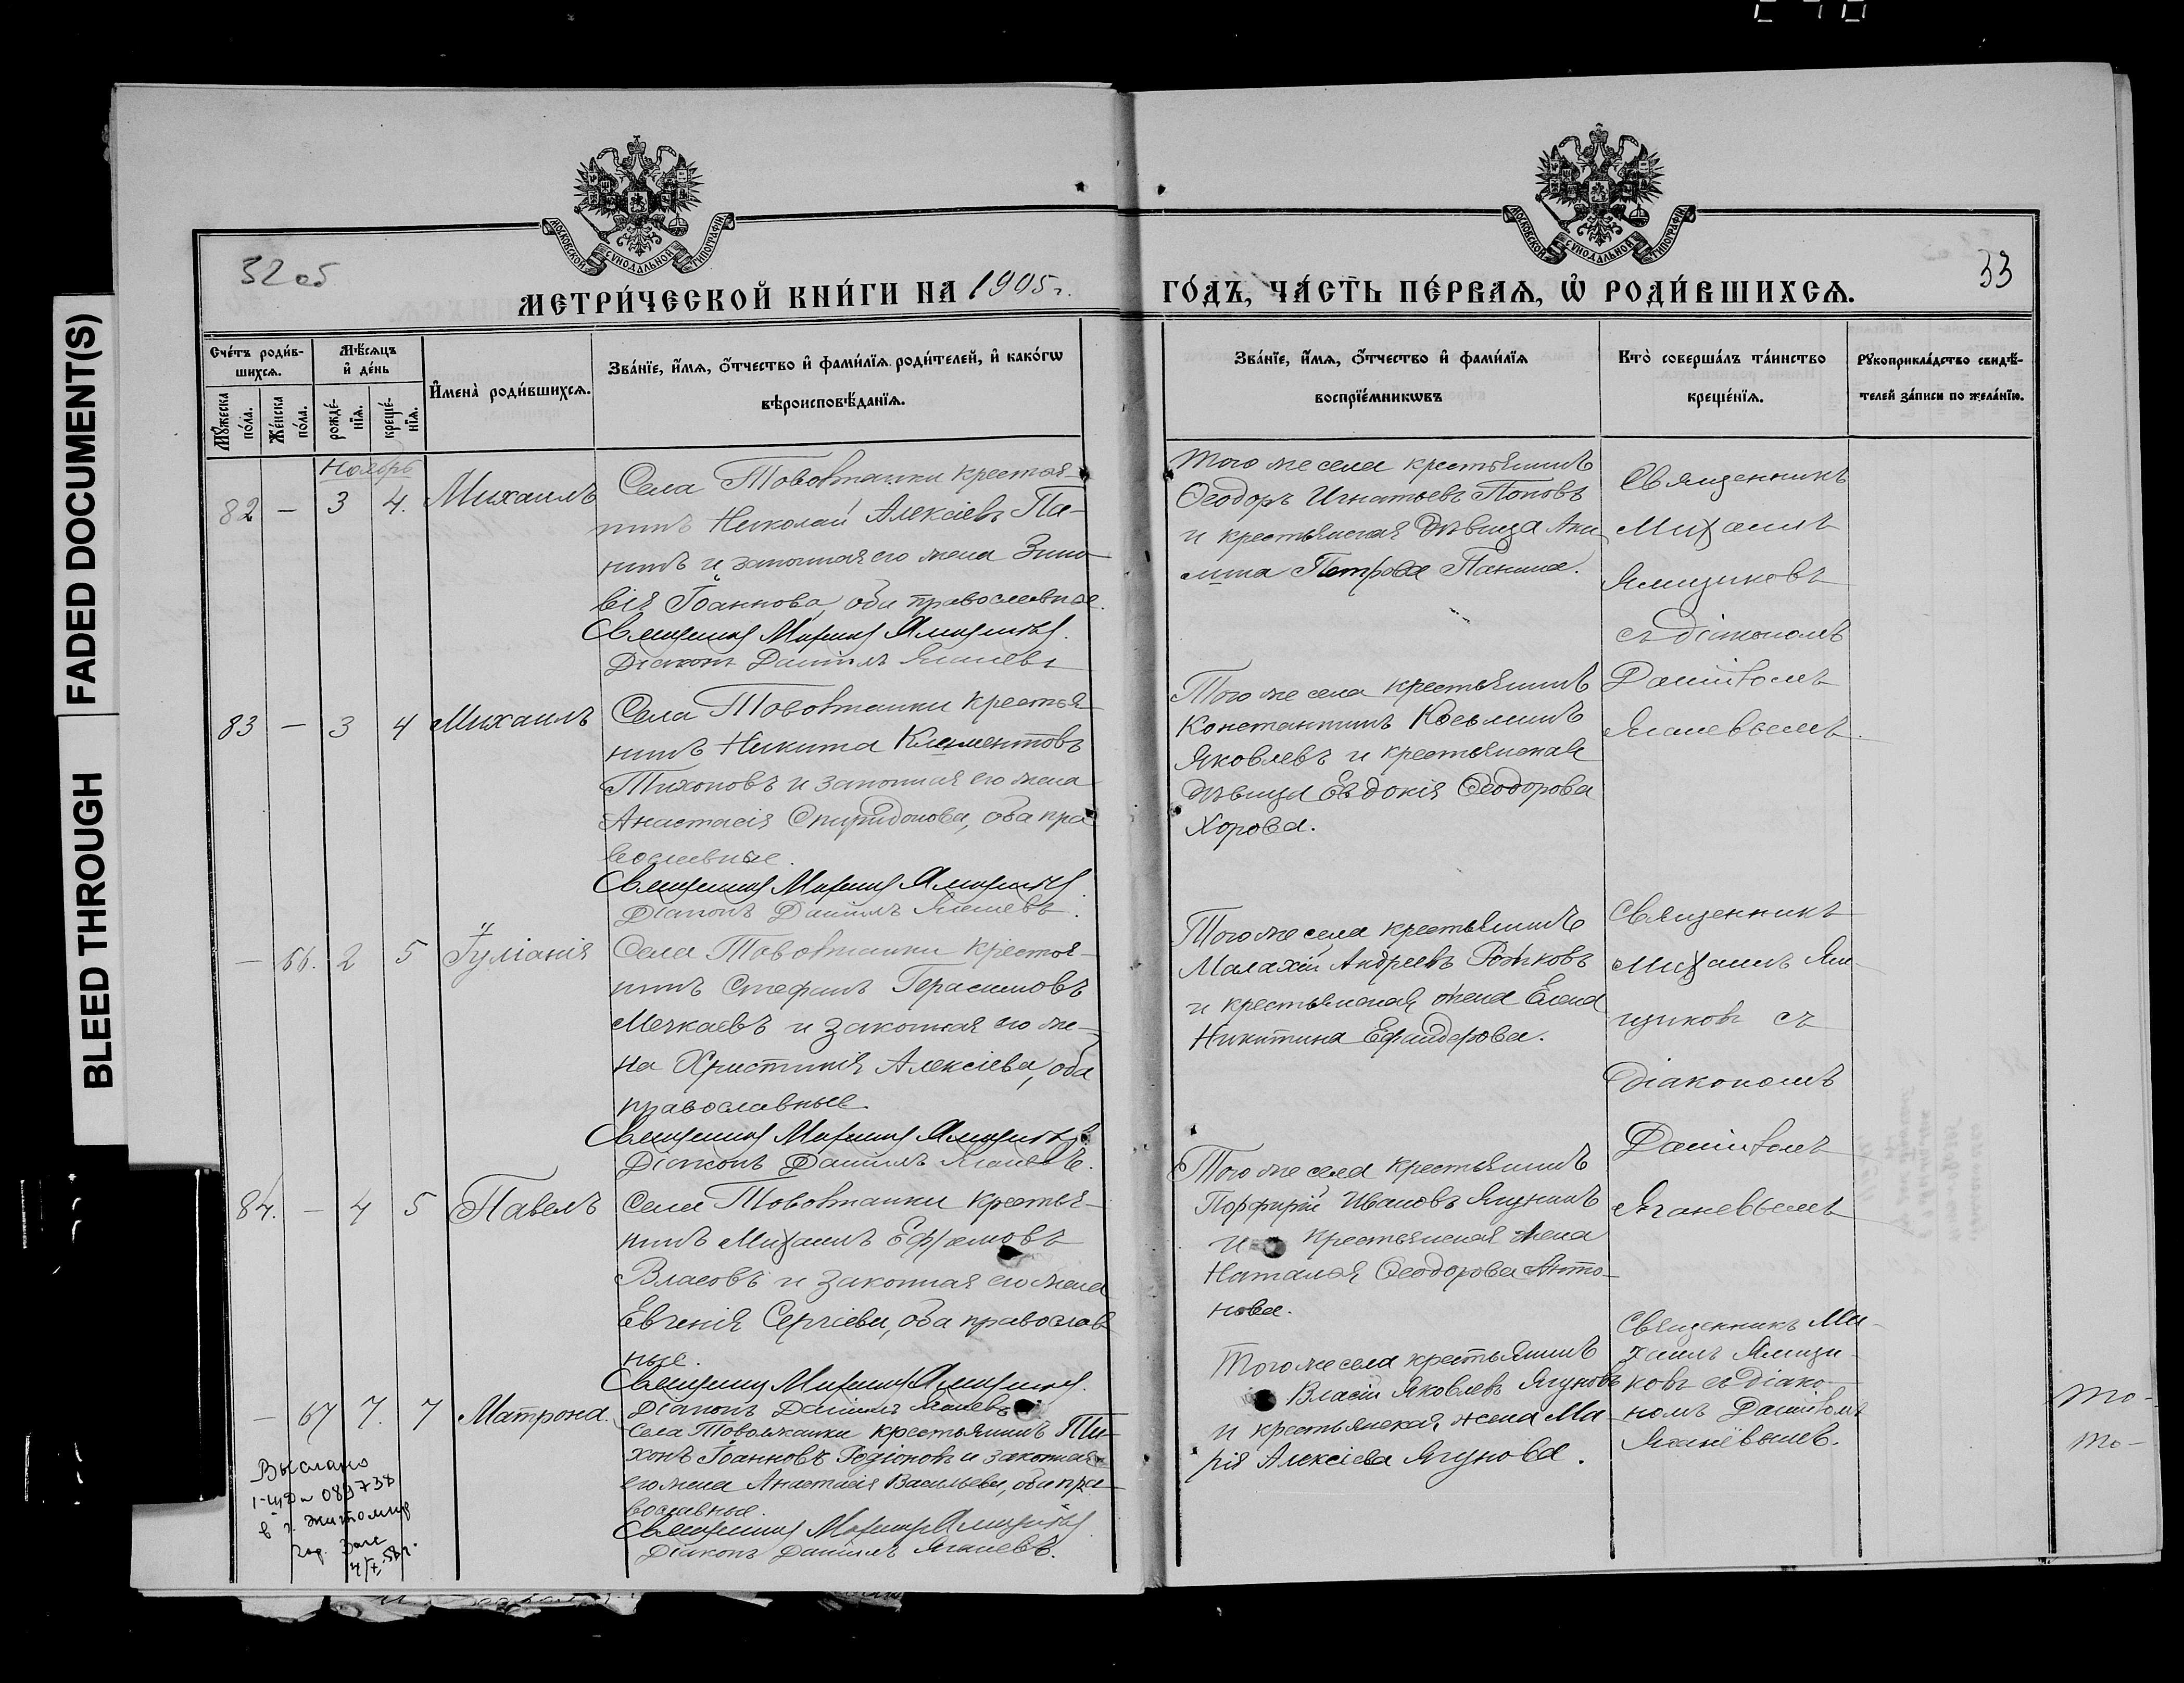 FADED DOCUMENT(S)
BLEED THROUGH
МОСКОВСКОЙ СѴНОДАЛЬНОЙ ТИПОГРАФІИ
МОСКОВСКОЙ СѴНОДАЛЬНОЙ ТИПОГРАФІИ
32 об
33
МЕТРИ́ЧЕСКОЙ КНИ́ГИ НА 1905 г.
ГО́ДЪ, ЧА́СТЬ ПЕ́РВАѦ, Ѡ҆ РОДИ́ВШИХСѦ.
Сче́тъ роди́в-
шихсѧ.
Мꙋ́жеска по́ла.
Же́нска по́ла.
Мѣ́сѧцъ и҆ де́нь
рожде́-нїѧ.
креще́-нїѧ.
И҆мена̀ роди́вшихсѧ.
Зва́нїе, и҆́мѧ, ѻ҆́тчество и҆ фами́лїѧ роди́телей, и҆ како́гѡ
вѣроисповѣ́данїѧ.
Зва́нїе, и҆́мѧ, ѻ҆́тчество и҆ фами́лїѧ
воспрїе́мникѡвъ
Кто̀ соверша́лъ та́инство
креще́нїѧ.
Рꙋкоприкла́дство свидѣ́-
телей за́писи по жела́нїю.
Ноябрь
82 — 3 4. Михаилъ
Села Товолжанки крестья-
нинъ Николай Алексіевъ Па-
нинъ и законная его жена Зино-
вія Іоаннова, оба православные.
Священникъ Михаилъ Ямщиковъ.
Діаконъ Даніилъ Яганевъ
Того же села крестьянинъ
Ѳеодоръ Игнатьевъ Поповъ
и крестьянская дѣвица Аки-
лина Петрова Панина.
Священникъ
Михаилъ
Ямщиковъ
съ діакономъ
Даніиломъ
Яганевымъ.
83 — 3 4 Михаилъ
Села Товолжанки крестья-
нинъ Никита Климентовъ
Тихоновъ и законная его жена
Анастасія Спиридонова, оба пра-
вославные.
Священникъ Михаилъ Ямщиковъ
Діаконъ Даніилъ Яганевъ.
Того же села крестьянинъ
Константинъ Косьминъ
Яковлевъ и крестьянская
дѣвица Евдокія Ѳеодорова
Хорова.
— 66. 2 5 Іуліанія
Села Товолжанки крестья-
нинъ Стефанъ Герасимовъ
Мечкаевъ и законная его же-
на Христинія Алексіева, оба
православные.
Священникъ Михаилъ Ямщиковъ
Діаконъ Даніилъ Яганевъ.
Того же села крестьянинъ
Малахій Андреевъ
и крестьянская жена Елена
Никитина
Священникъ
Михаилъ Ям-
щиковъ съ
діакономъ
Даніиломъ
Яганевымъ
84. — 4 5 Павелъ
Села Товолжанки крестья-
нинъ Михаилъ Ефремовъ
Власовъ и законная его жена
Евгенія Сергіева, оба православ-
ные.
Священникъ Михаилъ Ямщиковъ.
Діаконъ Даніилъ Яганевъ
Того же села крестьянинъ
Порфирій Ивановъ Ягунинъ
и крестьянская жена
Наталія Ѳеодорова Анто-
нова.
— 67 7. 7 Матрона.
Села Товолжанки крестьянинъ Ти-
хонъ Іоанновъ Родіоновъ и законная
его жена Анастасія Васильева, оба пра-
вославные.
Священникъ Михаилъ Ямщиковъ
Діаконъ Даніилъ Яганевъ.
Того же села крестьянинъ
Власій Яковлевъ Ягуновъ
и крестьянская жена Ма-
рія Алексіева Ягунова.
Священникъ Ми-
хаилъ Ямщи-
ковъ съ діако-
номъ Даніиломъ
Яганевымъ.
то-
то-
Выслано
089738
в г. Житомир